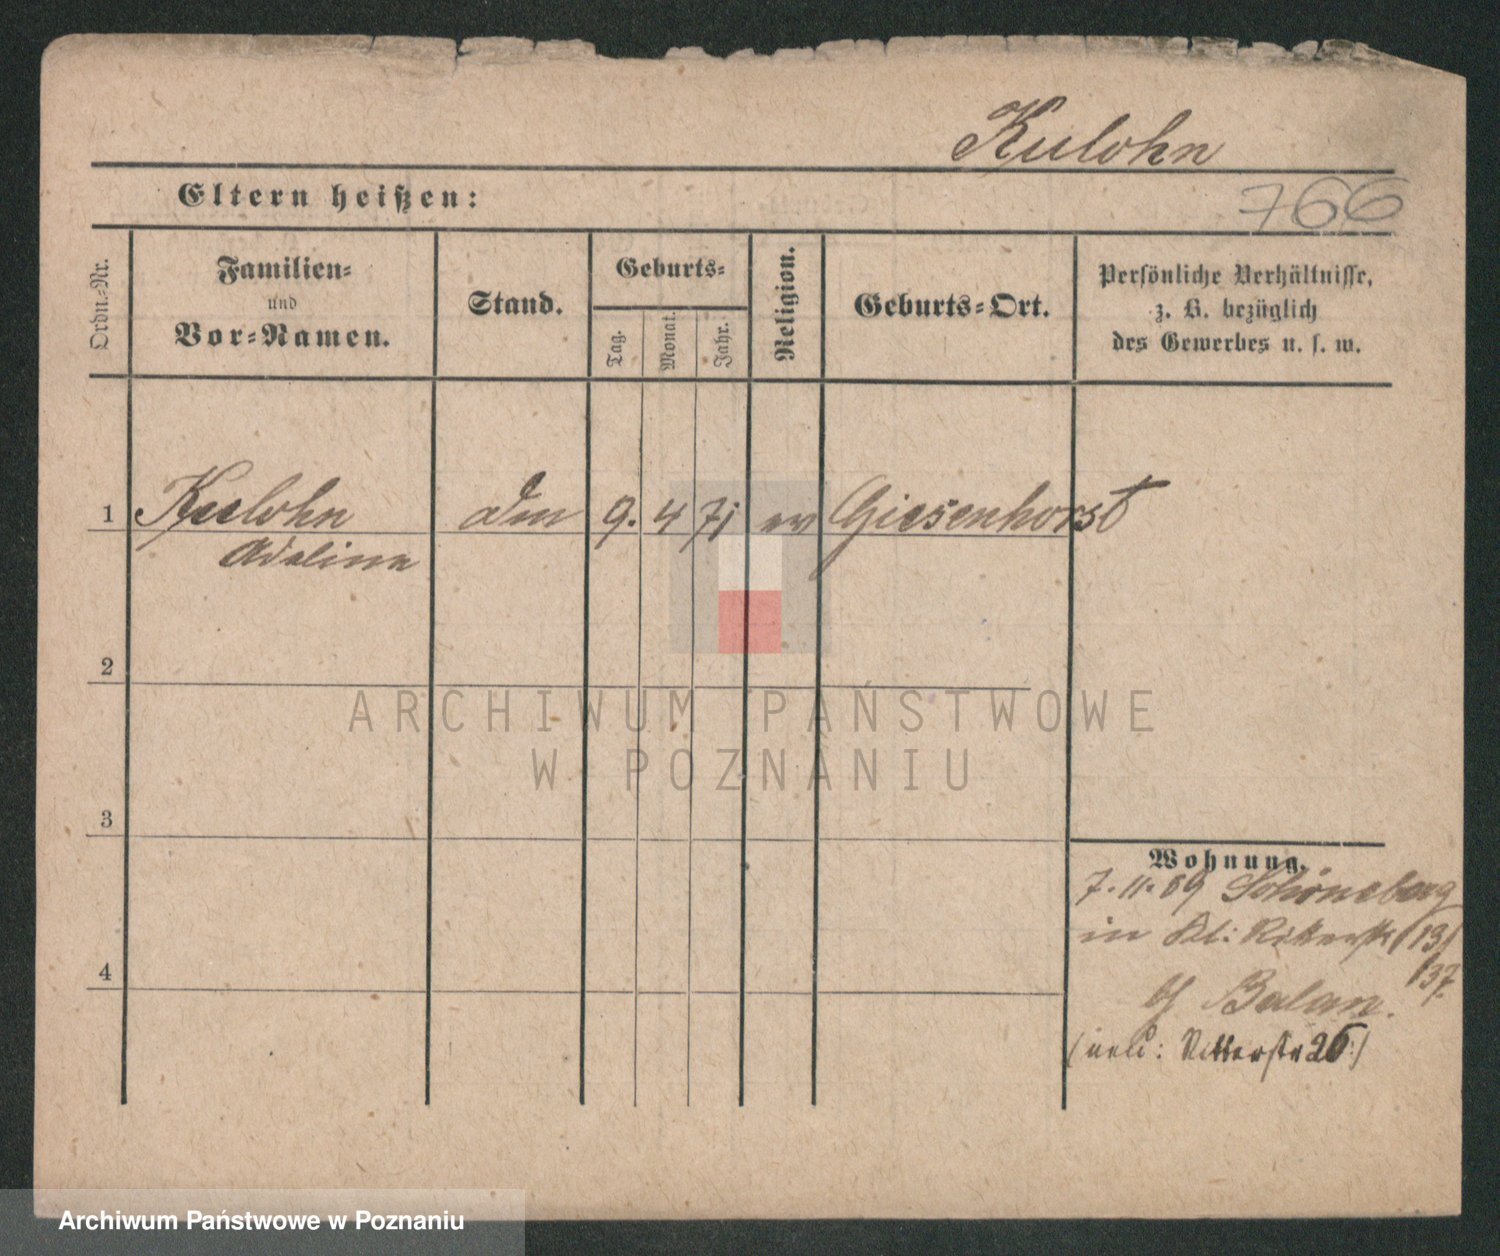 Kulohn
Eltern heißen:
766
Ordn.-Nr.
Familien-
und
Vor-Namen.
Stand.
Geburts-
Tag.
Monat.
Jahr.
Religion.
Geburts-Ort.
Persönliche Verhältnisse,
z. B. bezüglich
des Gewerbes u. s. w.
1 Kulohn 9. 4 71 ev Giesenhorst
Adeline
2
3
4
Wohnung.
7. 11. 89 Schöneberg
in Kl: Ritterstr 13/
137.
b/ Balan.
(neu: Ritterstr 26:)
ARCHIWUM PAŃSTWOWE
W POZNANIU
Archiwum Państwowe w Poznaniu